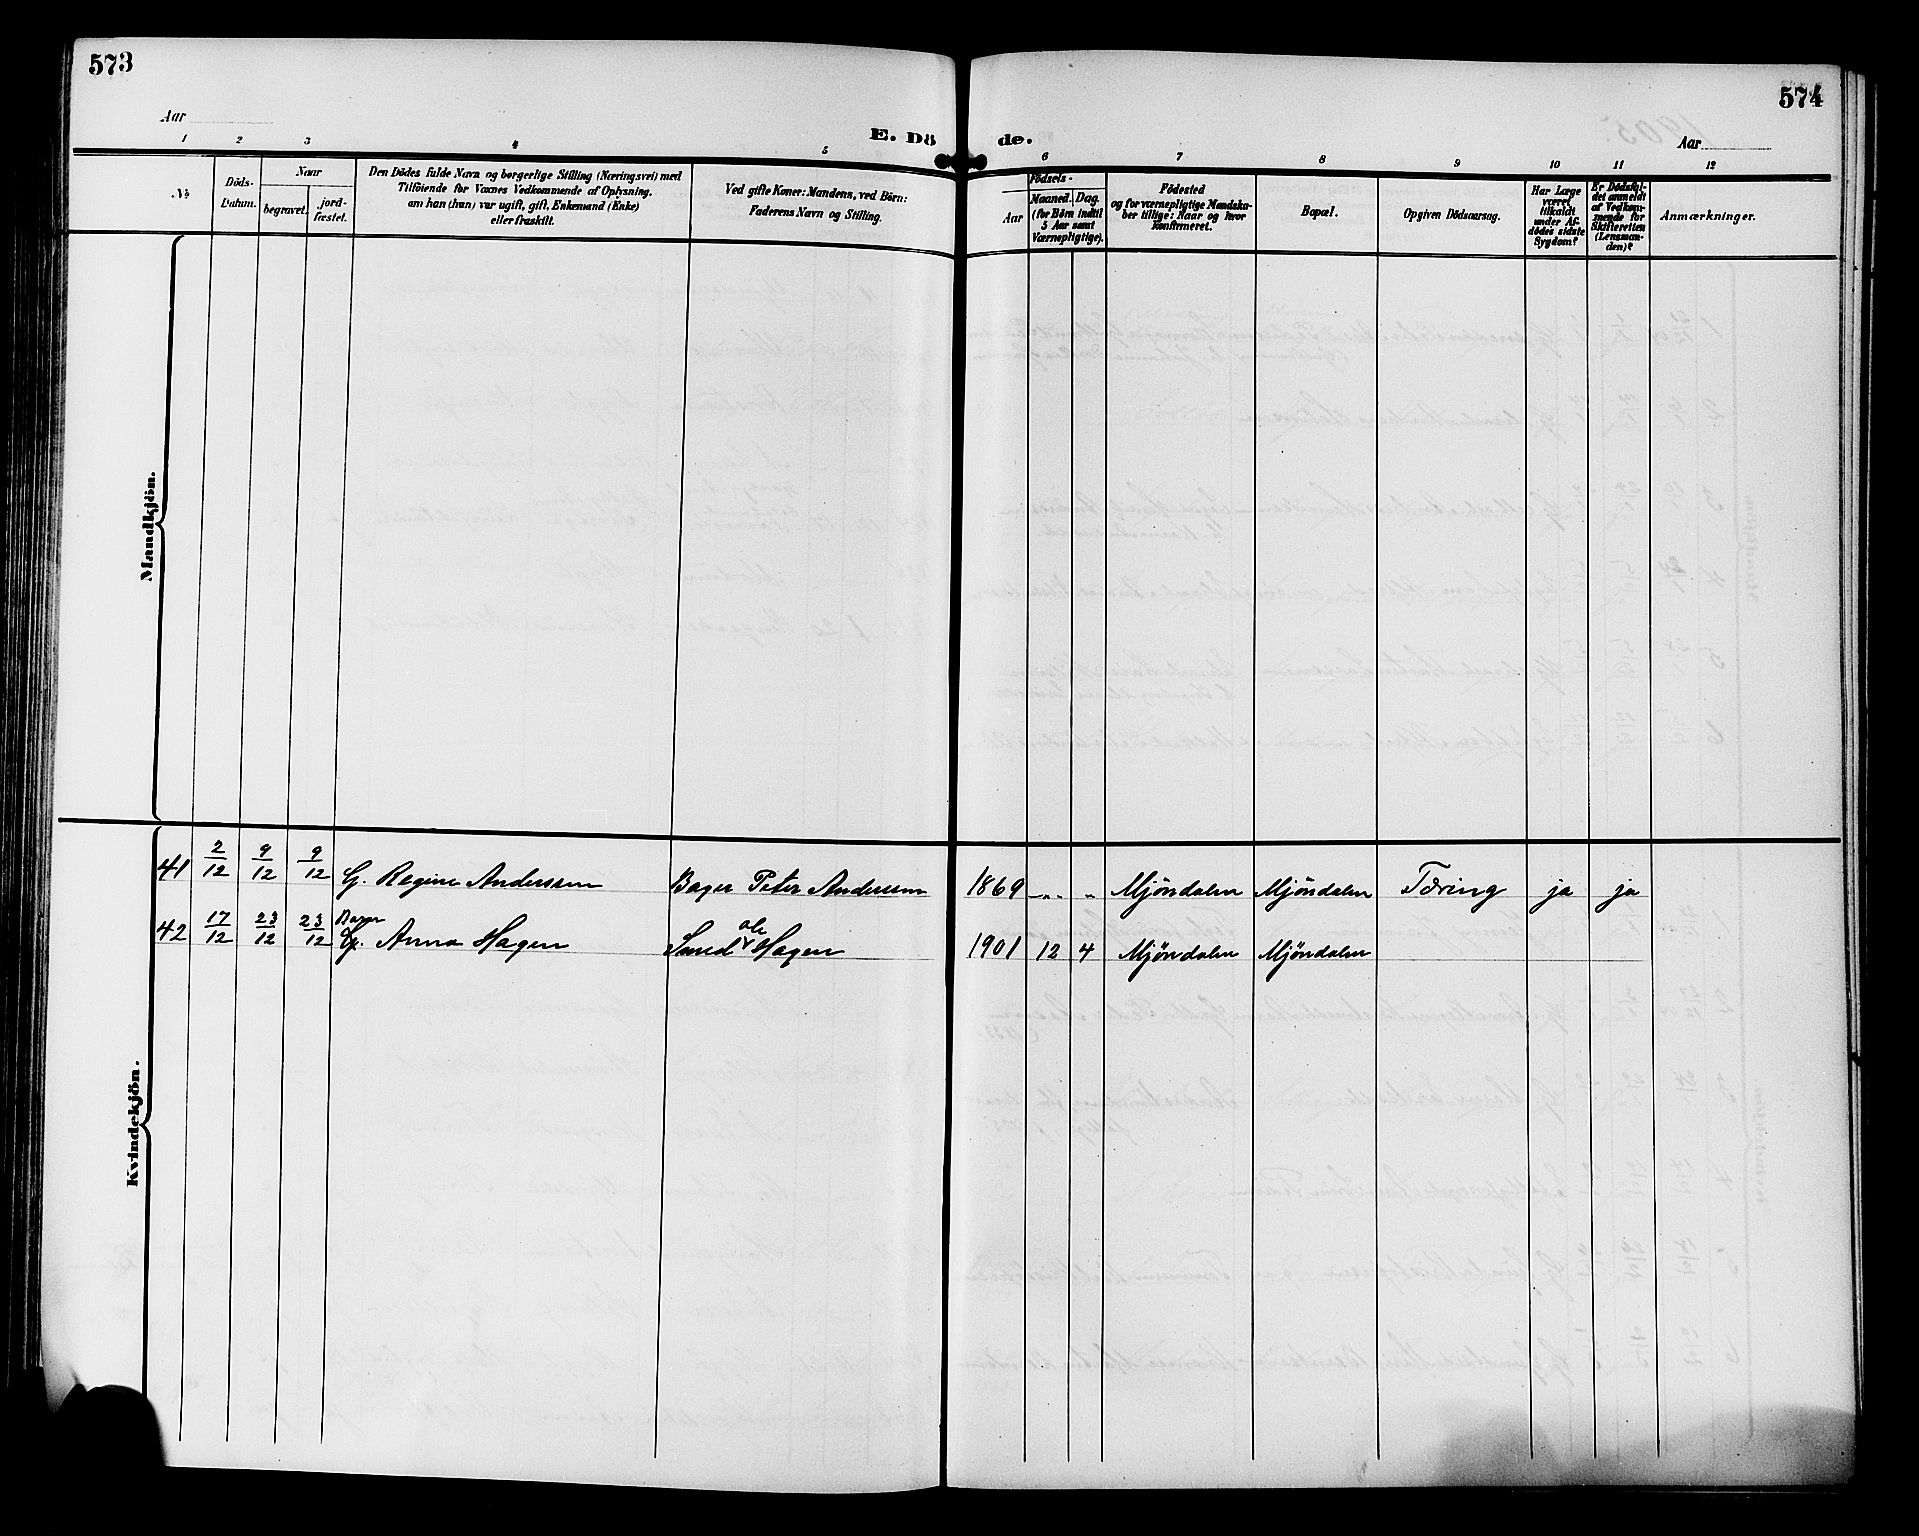 573
574
Aar
Aar
E. Dö de.
1 2 3 4 5 6 7 8 9 10 11 12
No
Döds-
Datum.
Naar
begravet.
jord-
fæstet.
Den Dödes fulde Navn og borgerlige Stilling (Næringsvei) med
Tilföiende for Voxnes Vedkommende af Oplysning,
om han (hun) var ugift, gift, Enkemand (Enke)
eller fraskilt.
Ved gifte Koner: Mandens, ved Börn:
Faderens Navn og Stilling.
Födsels-
Aar
Maaned.
Dag.
(for Börn indtil
5 Aar samt
Værnepligtige).
Födested
og for værnepligtige Mandska-
ber tillige: Naar og hvor
konfirmeret.
Bopæl.
Opgiven Dödsaarsag.
Har Læge
været
tilkaldt
under Af-
dödes sidste
Sygdom?
Er Dödsfal-
det anmeldt
af Vedkom-
mende for
Skifteretten
(Lensman-
den)?
Anmærkninger.
Mandkjön.
Kvindekjön.
41 2/12 9/12 9/12 G. Regine Anderssen Bager Peter Anderssen 1869 - „ „ Mjöndalen Mjöndalen Tæring ja ja
42 17/12 23/12 23/12 Barn Anna Hagen Smed Ole Hagen 1901 12 4 Mjöndalen Mjöndalen